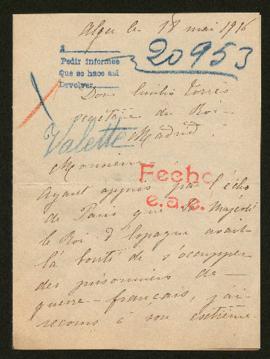 Alger le 18 mai 1916
A
Pedir informes
Que se hace aut
Devolver
20953
Don Emilio Torres
secrétaire du Roi
Madrid
Valette
Monsieur
Fecho
e.a.c.
Ayant appris par l'écho
de Paris que Sa Majesté
le Roi d'Espagne avait
la bonté de s'occuper
des prisonniers de
guerre français, j'ai
recours à son extrême